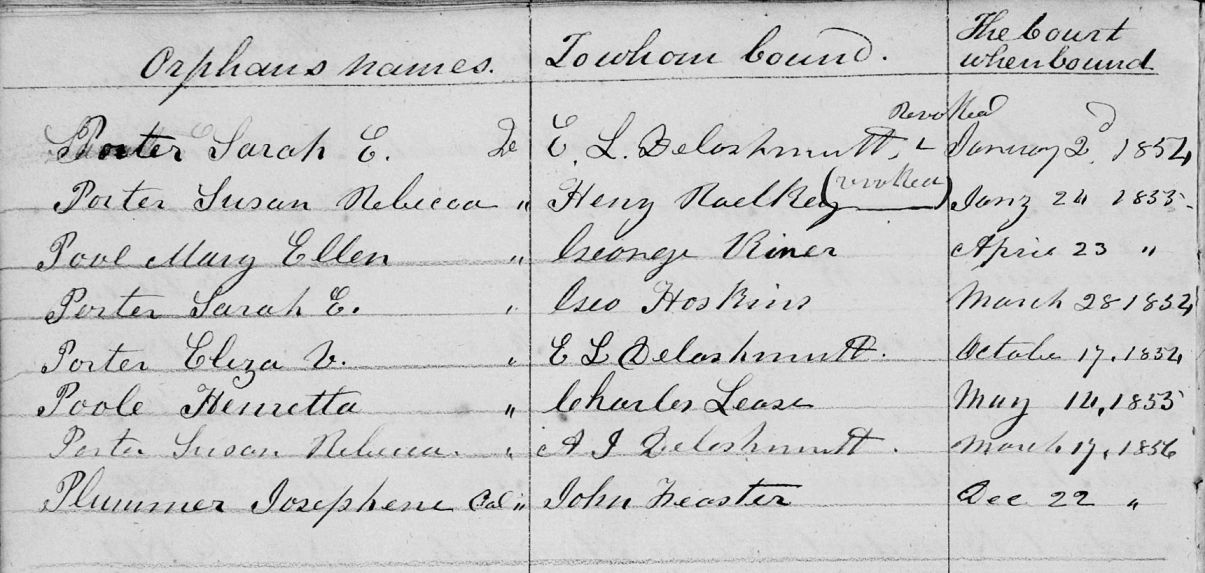 Orphans names. To whom bound. The Court when bound
Porter Sarah E. To E. L. Delashmutt, Revoked January 2d, 1854
Porter Susan Rebecca " Henry Raelkey (revoked) Jany 24 1855
Pool Mary Ellen " George Riner April 23 "
Porter Sarah E. " Geo Hoskins March 28 1854
Porter Eliza V. " E L Delashmutt. October 17, 1854
Poole Henretta " Charles Lease May 14, 1855
Porter Susan Rebecca. " A J Delashmutt. March 17, 1856
Plummer Josephene Col " John Feaster Dec 22 "